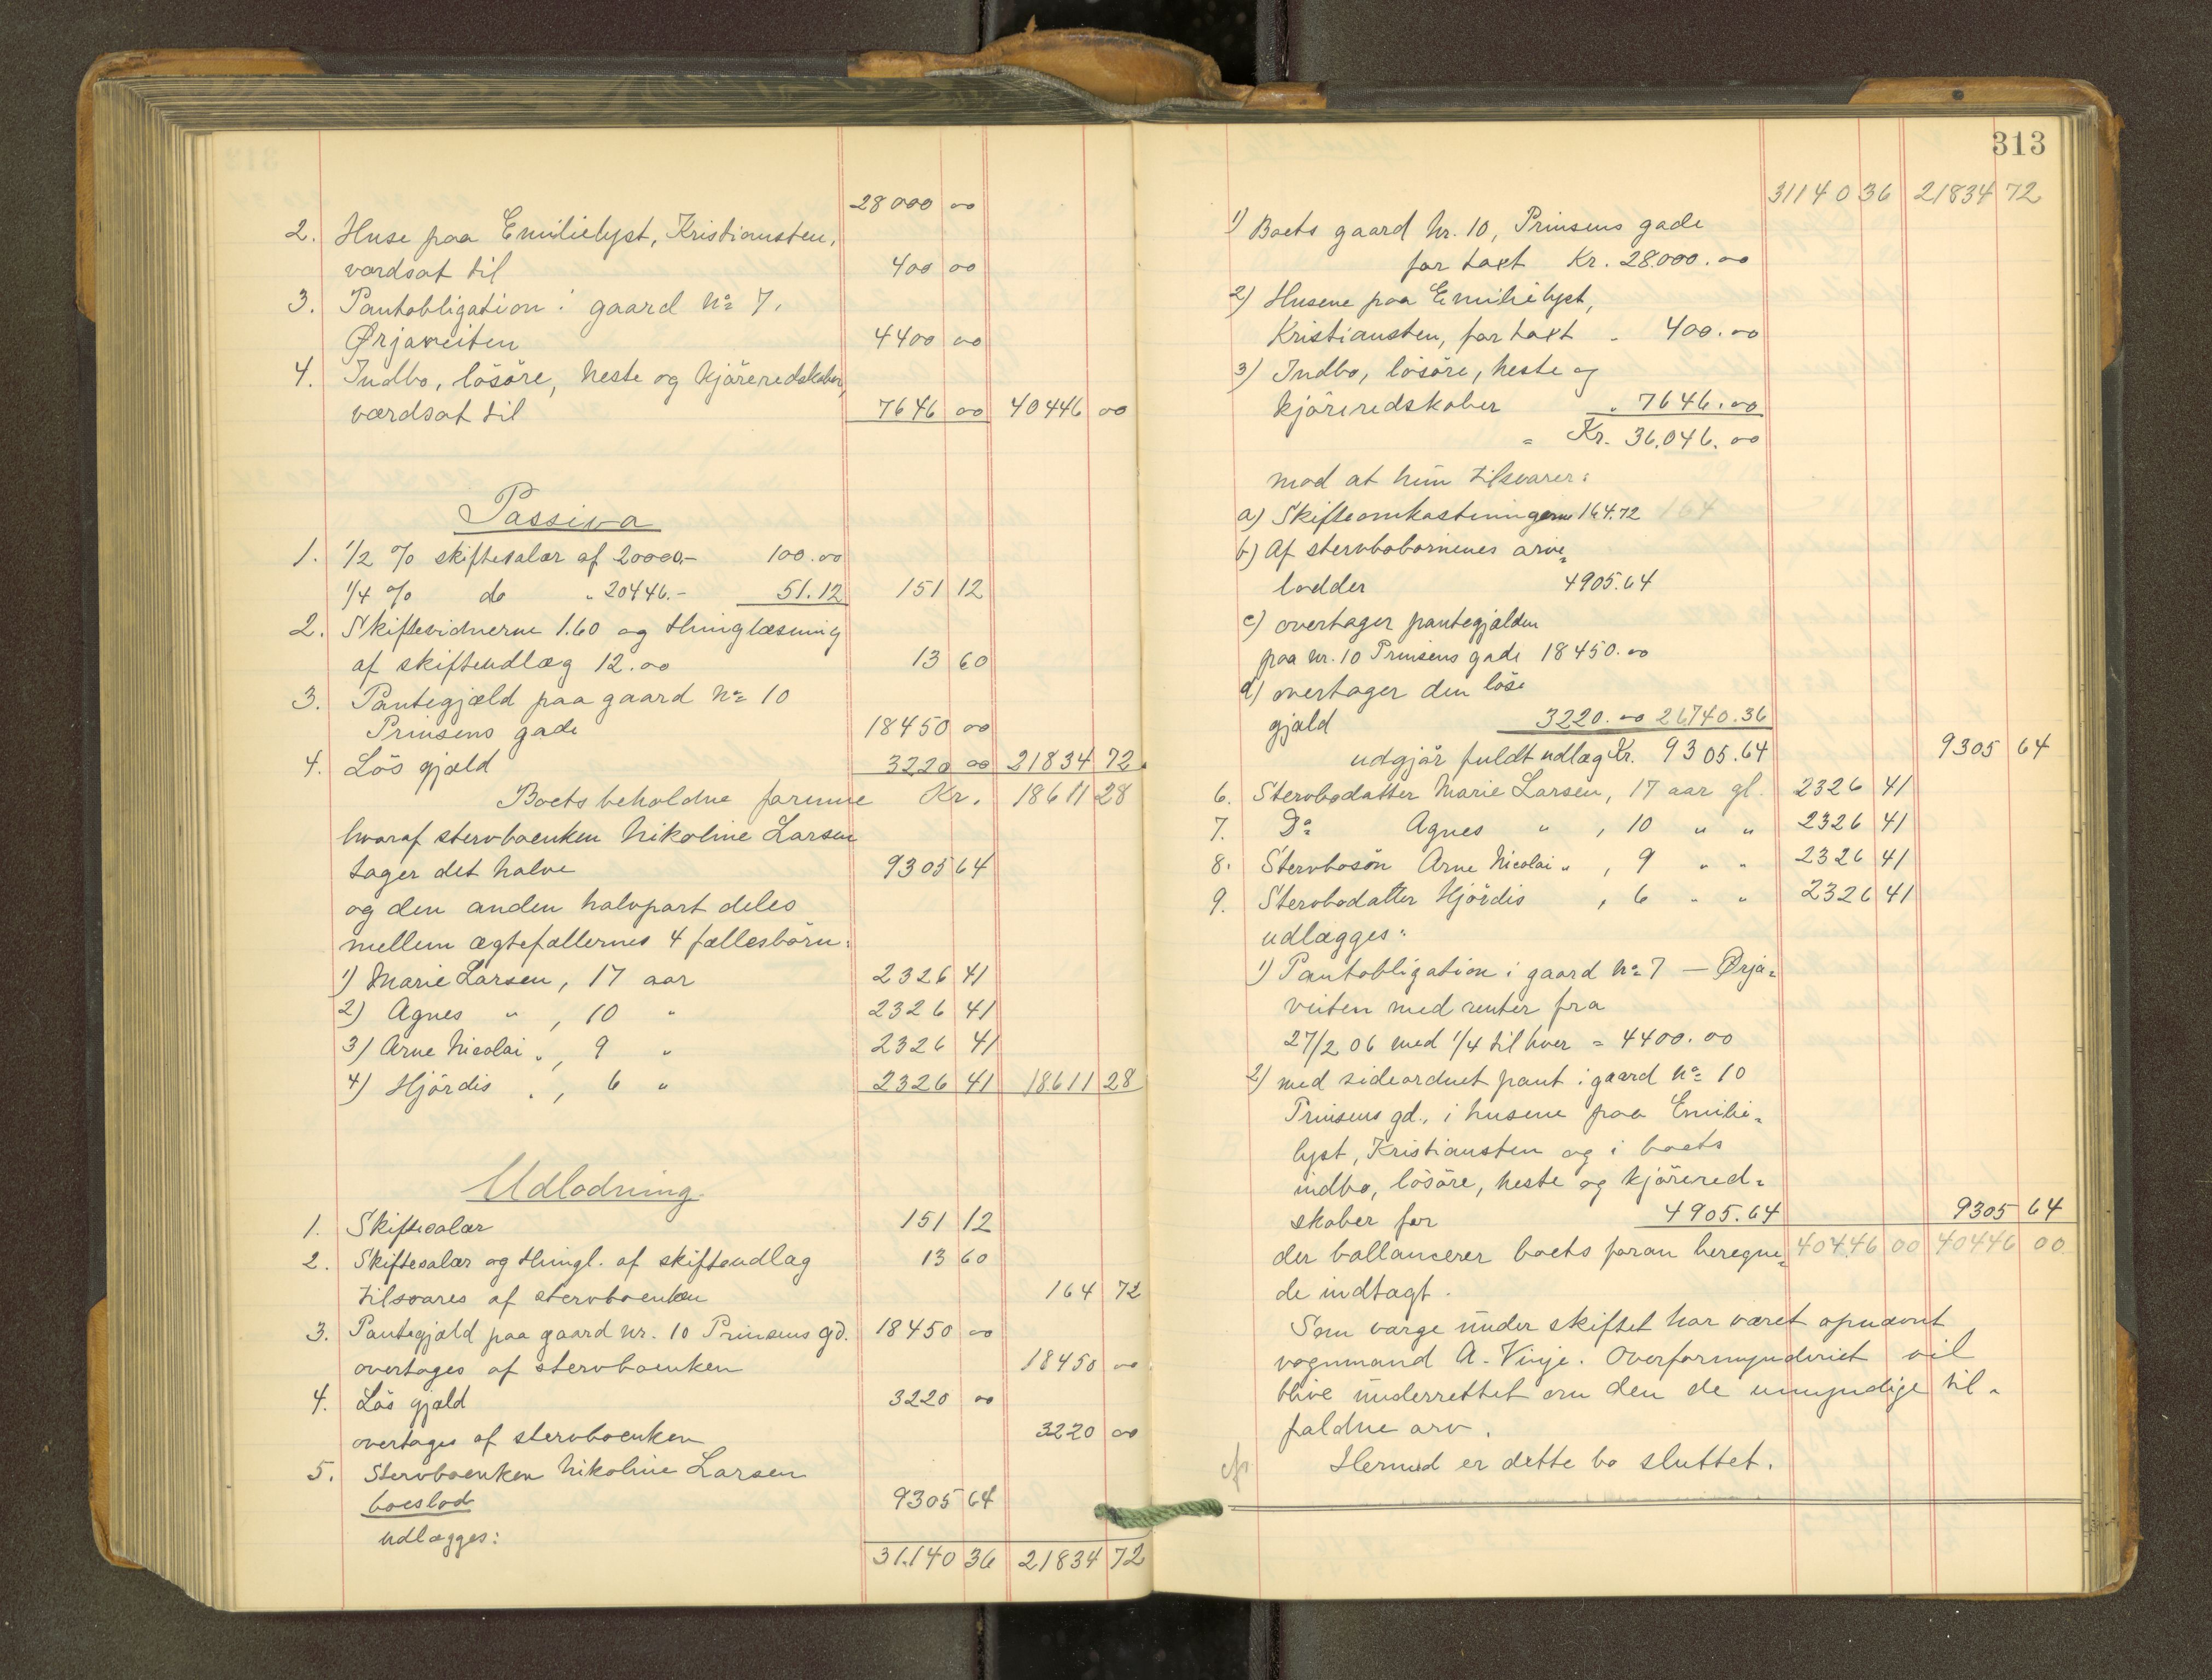 28000 00
2. Huse paa Emilielyst, Kristiansten,
værdsat til 400 00
3. Pantobligation i gaard No 7,
Ørjaveiten 4400 00
4. Indbo, løsøre, heste og kjøreredskaber,
værdsat til 7646 00 40446 00
Passiva
1. 1/2 % skiftesalær af 20000.- 100.00
1/4 % do " 20446.- 51.12 151 12
2. Skiftevidnerne 1.60 og thinglæsning
af skifteudlæg 12.00 13 60
3. Pantegjæld paa gaard No 10
Prinsens gade 18450 00
4. Løs gjæld 3220 00 21834 72
Boets beholdne formue Kr. 18611 28
hvoraf stervboenken Nikoline Larsen
tager det halve 9305 64
og den anden halvpart deles
mellem ægtefællernes 4 fællesbørn:
1) Marie Larsen, 17 aar 2326 41
2) Agnes " , 10 " 2326 41
3) Arne Nicolai " , 9 " 2326 41
4) Hjördis " , 6 " 2326 41 18611 28
Udlodning
1. Skiftesalær 151 12
2. Skiftesalær og thingl. af skifteudlæg 13 60
tilsvares af stervboenken 164 72
3. Pantegjæld paa gaard nr. 10 Prinsens gd. 18450 00
overtages af stervboenken 18450 00
4. Løs gjæld 3220 00
overtages af stervboenken 3220 00
5. Stervboenken Nikoline Larsen
boeslod 9305 64
udlægges:
31.140 36 21834 72
313
31140 36 21834 72
1) Boets gaard Nr. 10, Prinsens gade
for taxt Kr. 28.000.00
2) Husene paa Emilielyst,
Kristiansten, for taxt " 400.00
3) Indbo, løsøre, heste og
kjøreredskaber " 7646.00
= Kr. 36.046.00
mod at hun tilsvarer:
a) Skifteomkostningerne 164.72 164
b) Af stervbobørnenes arve=
lodder 4905.64
c) overtager pantegjælden
paa nr. 10 Prinsens gade 18450.00
d) overtager den løse
gjæld 3220.00 26740.36
udgjør fuldt udlæg Kr. 9305.64 9305 64
6. Stervbodatter Marie Larsen, 17 aar gl. 2326 41
7. Do Agnes " , 10 " " 2326 41
8. Stervbosøn Arne Nicolai " , 9 " " 2326 41
9. Stervbodatter Hjördis , 6 " " 2326 41
udlægges:
1) Pantobligation i gaard No 7 — Ørja=
veiten med renter fra
27/2 06 med 1/4 til hver = 4400.00
2) med sideordnet pant i gaard No 10
Prinsens gd., i husene paa Emilie=
lyst, Kristiansten og i boets
indbo, løsøre, heste og kjørered=
skaber for 4905.64 9305 64
der ballancerer boets foran beregne= 40446 00 40446 00
de indtægt.
Som værge under skiftet har været opnævnt
vognmand A. Vinje. Overformynderiet vil
blive underrettet om den de umyndige til=
faldne arv.
Hermed er dette bo sluttet.